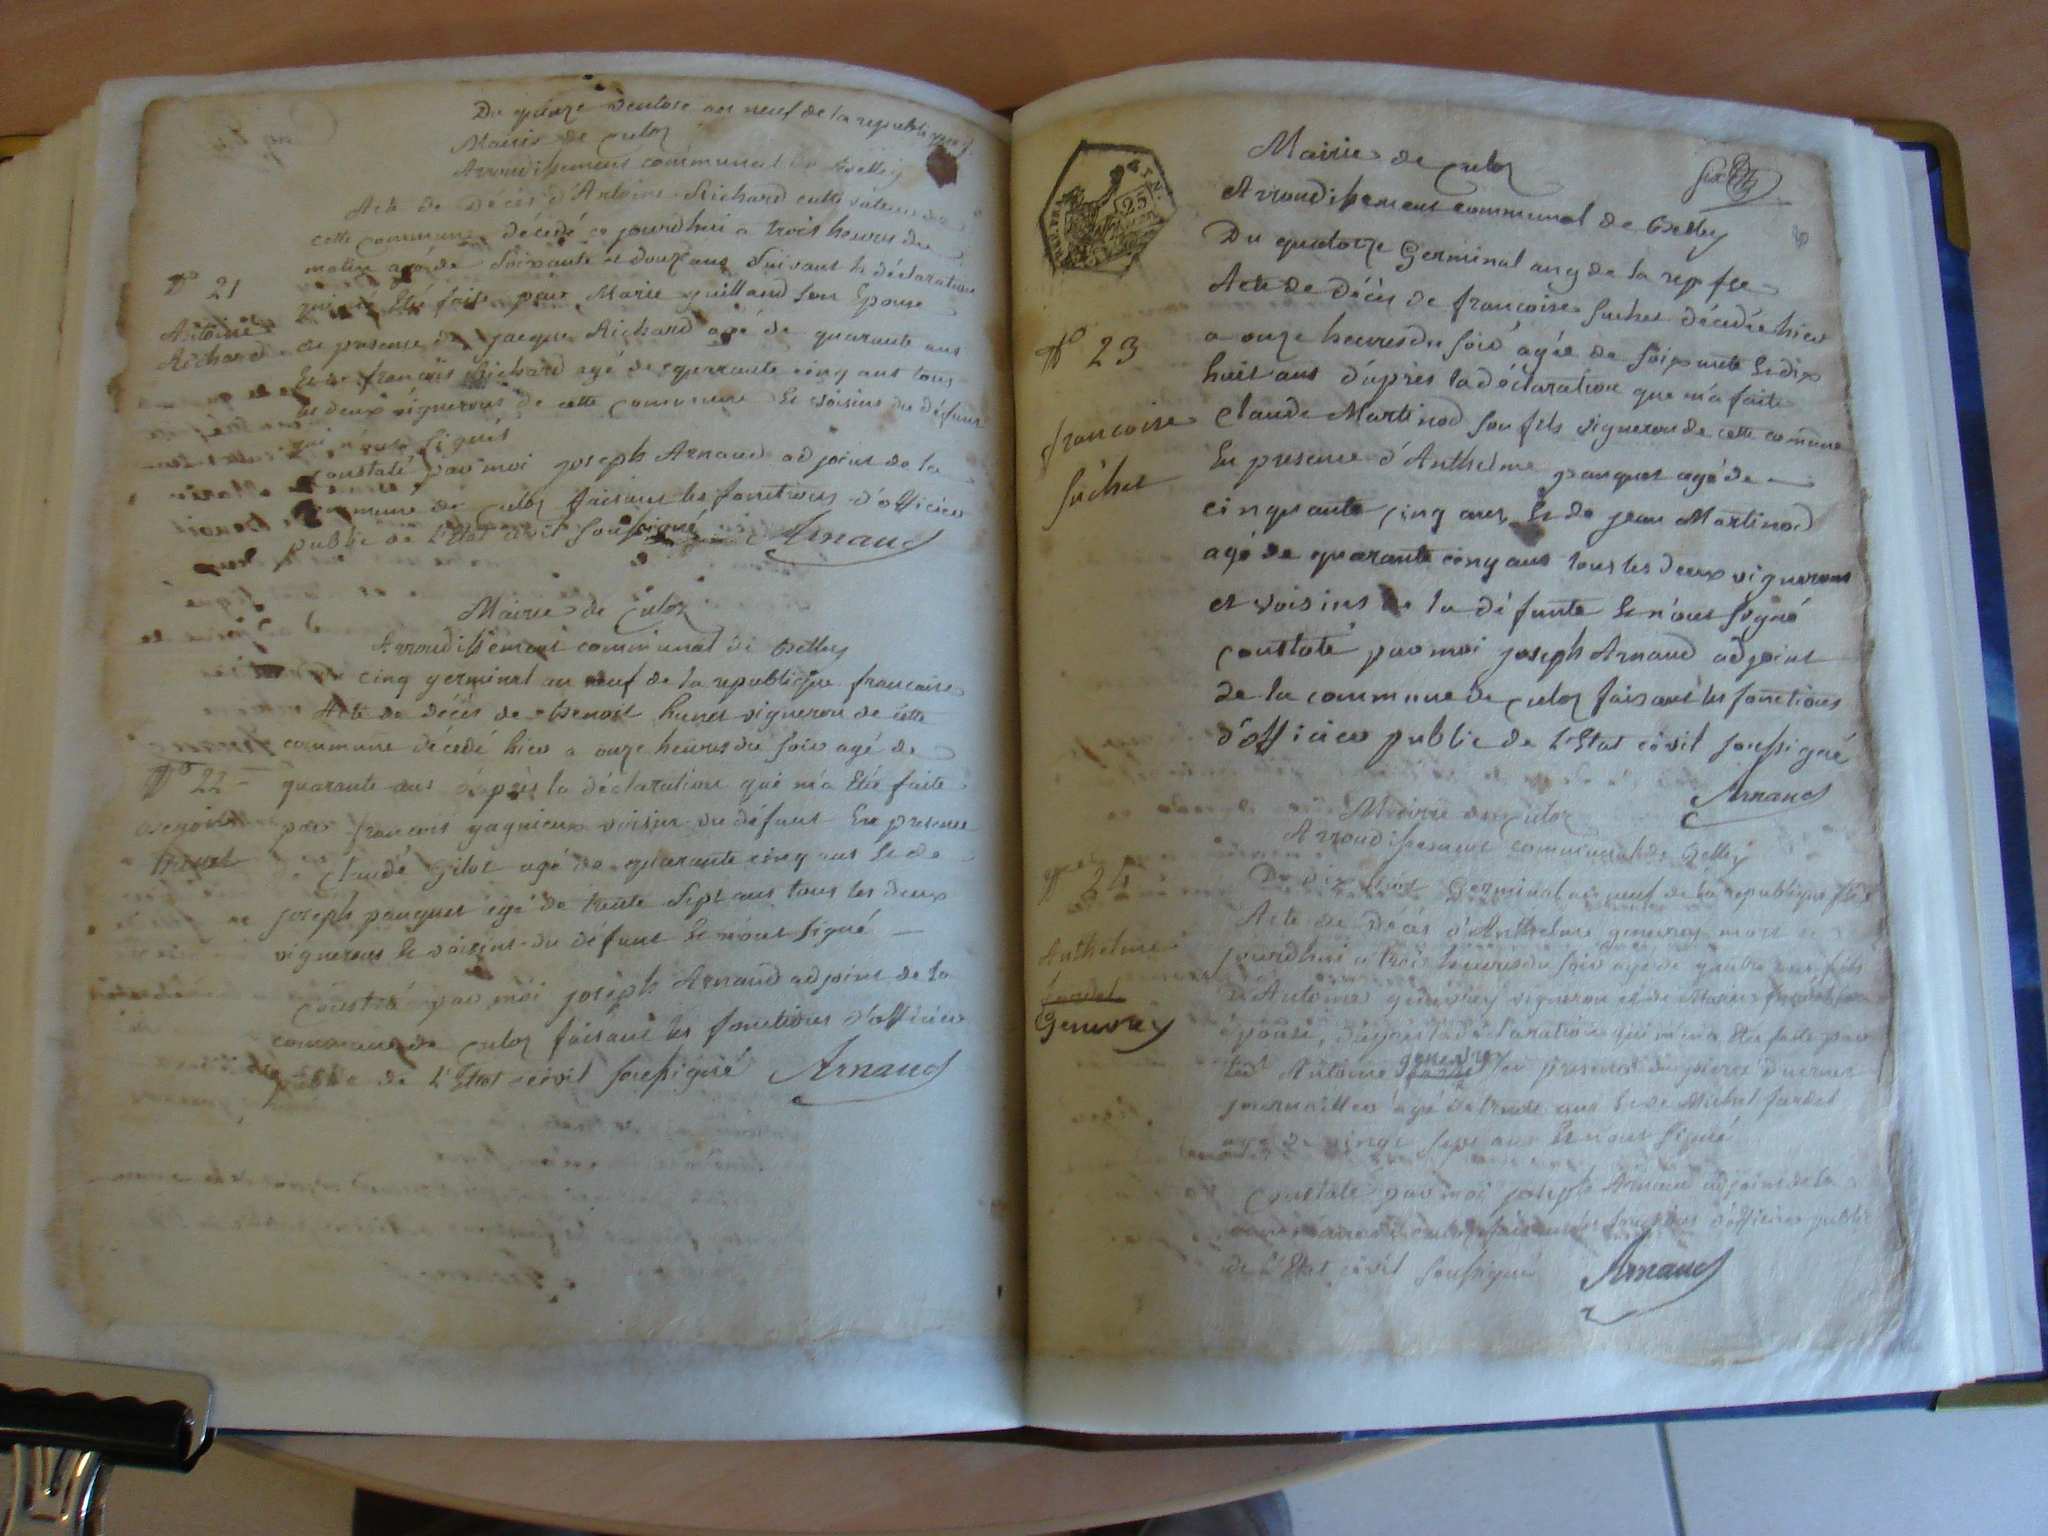 Du quinze ventose an neuf de la republique f.
Mairie de Culoz
Arrondissement communal de Belley
Acte de Décès d'Antoine Richard cultivateur de
cette commune décédé ce jourdhui a trois heures du
matin agé de soixante et douze ans suivant la déclaration
N° 21
qui m'a Eté faite par Marie guilland son Epouse
Antoine
Richard
en presence de jacque Richard agé de quarante ans
Et de françois Richard agé de quarante cinq ans tous
les deux vignerons de cette commune Et voisins du défunt
qui n'ont signés
constaté par moi joseph Arnaud adjoint de la
commune de Culoz faisant les fonctions d'officier
public de l'Etat civil soussigné Arnaud
Mairie de Culoz
Arrondissement communal de Belley
cinq germinal an neuf de la republique francaise
Acte de décès de Benoit hunet vigneron de cette
commune décédé hier a onze heures du soir agé de
N° 22
quarante ans d'après la déclaration qui m'a Eté faite
Benoit
hunet
par françois gagnieux voisin du défunt En presence
de claude gilot agé de quarante cinq ans Et de
joseph pauquet agé de trente sept ans tous les deux
vignerons Et voisins du défunt Et n'ont signé
Constaté par moi joseph Arnaud adjoint de la
commune de Culoz faisant les fonctions d'officier
public de l'Etat civil soussigné Arnaud
25
Mairie de Culoz
Arrondissement communal de Belley
Du quatorze Germinal an 9 de la rep fse
Acte de Décès de francoise suchet décédée hier
N° 23
a onze heures du soir agée de soixante Et dix
huit ans d'après la déclaration que m'a faite
francoise
suchet
Claude Martinod son fils vigneron de cette commune
En presence d'Anthelme pauquet agé de
cinquante cinq ans Et de jean Martinod
agé de quarante cinq ans tous les deux vignerons
et voisins de la défunte Et n'ont signé
constaté par moi joseph Arnaud adjoint
de la commune de Culoz faisant les fonctions
d'officier public de l'Etat civil soussigné
Arnaud
Mairie de Culoz
Arrondissement communal de Belley
N° 24
Du dix huit Germinal an neuf de la republique fse
Acte de Décès d'Anthelme genevrey mort ce
Anthelme
fardel
Genevrey
jourdhui a trois heures du soir agé de quatre ans fils
d'Antoine genevrey vigneron et de Marie fardel son
épouse, d'après la déclaration qui m'en a Eté faite par
ledt Antoine genevrey en presence de pierre
journaillier agé de trente ans Et de Michel fardel
agé de vingt sept ans Et n'ont signé
Constaté par moi joseph Arnaud adjoint de la
commune de Culoz faisant les fonctions d'officier public
de l'Etat civil soussigné Arnaud